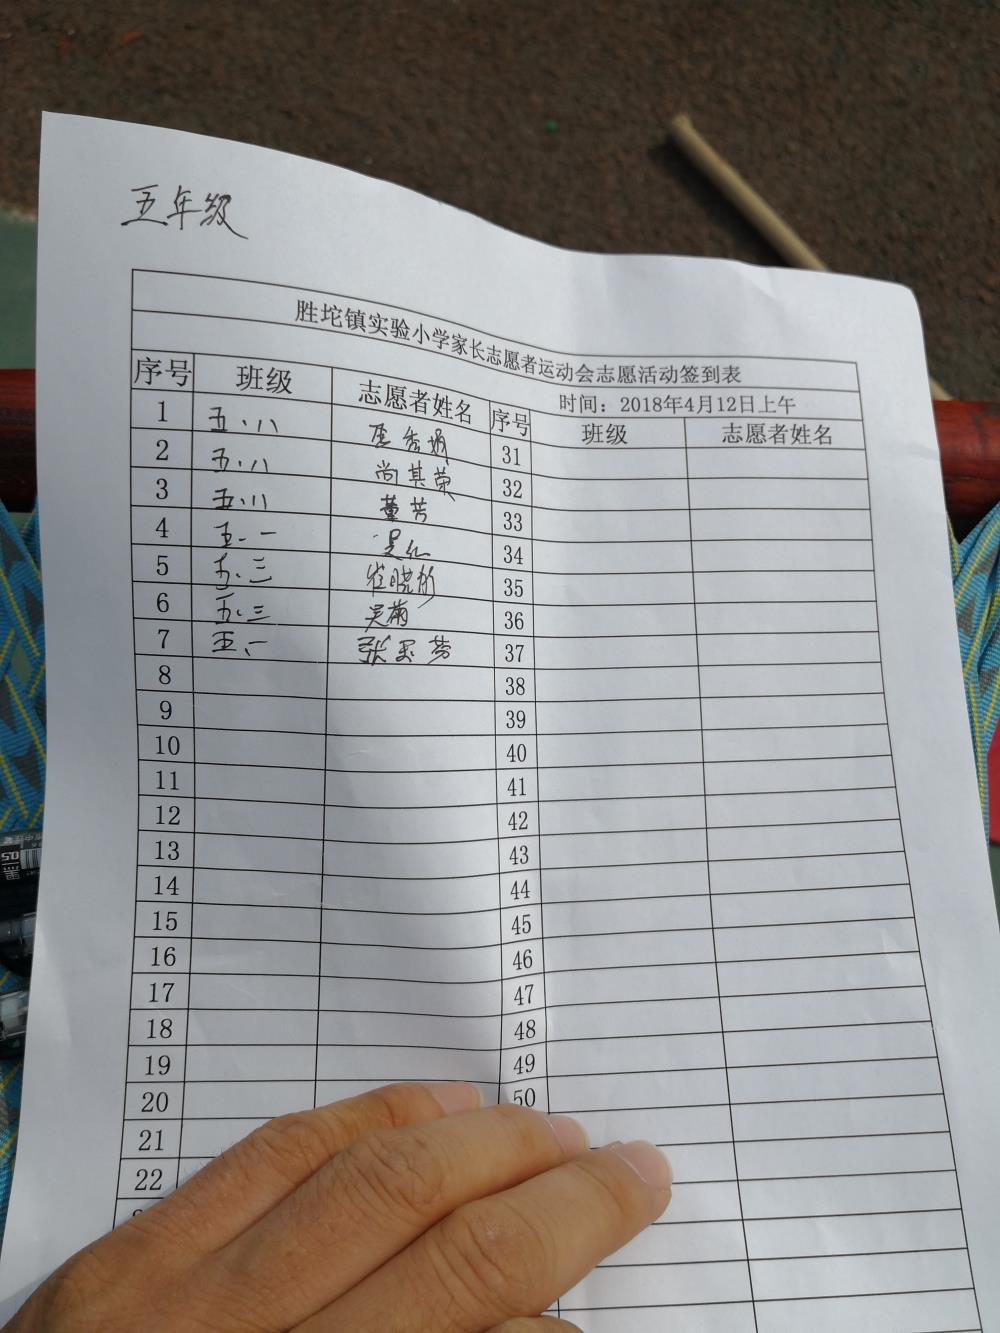 五年级
胜坨镇实验小学家长志愿者运动会志愿活动签到表
时间：2018年4月12日上午
序号 班级 志愿者姓名 序号 班级 志愿者姓名
1 五.八 秀娟 31
2 五.八 尚其荣 32
3 五.八 董芳 33
4 五.一 吴 34
5 五.三 崔晓彬 35
6 五.三 吴菊 36
7 五.一 张 芳 37
8 38
9 39
10 40
11 41
12 42
13 43
14 44
15 45
16 46
17 47
18 48
19 49
20 50
21
22
黑
0.5